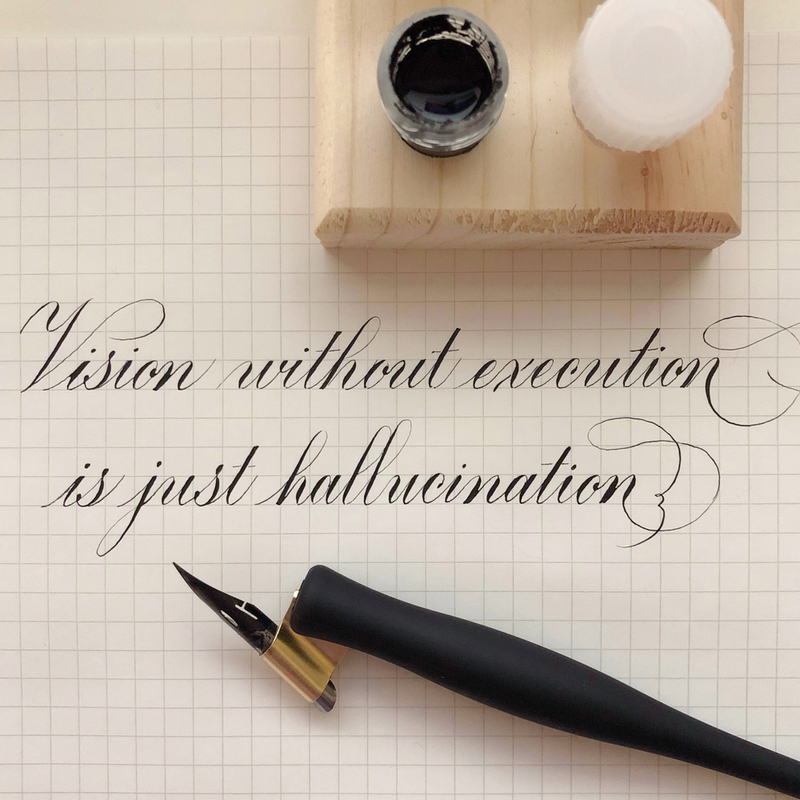 Vision without execution
is just hallucination